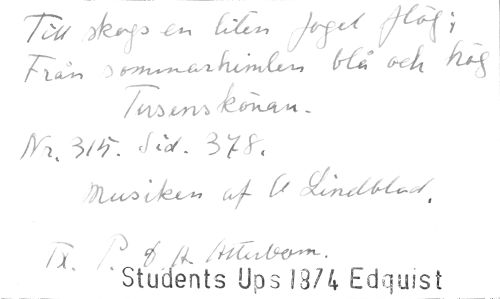 Till skogs en liten fogel flög;
Från sommarhimlen blå och hög
Tusenskönan.
Nr. 315. Sid. 378.
Musiken af A Lindblad.
Tx. P. D. A. Atterbom.
Students Ups 1874 Edquist